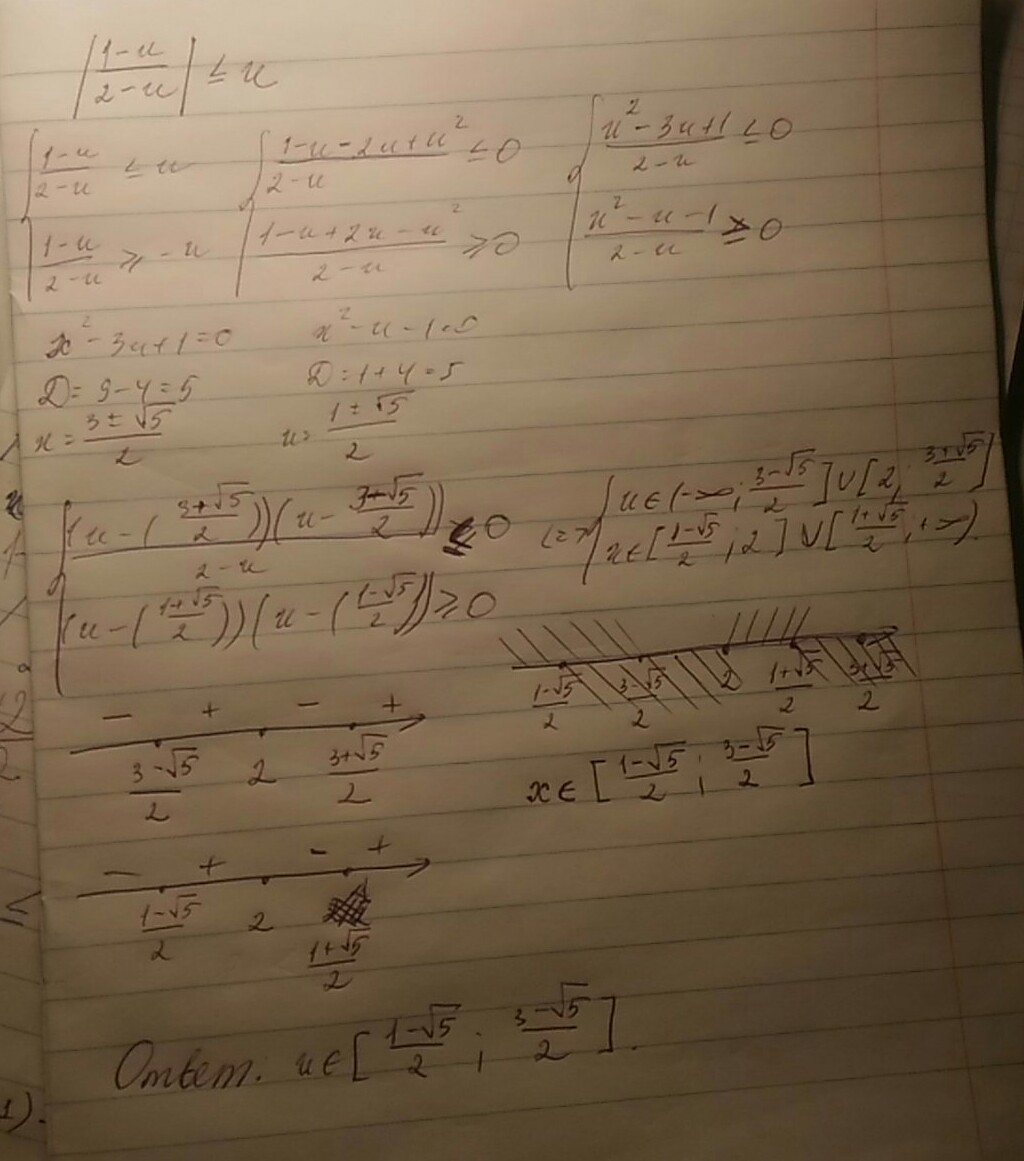 |(1-x)/(2-x)| ≤ x
{ (1-x)/(2-x) ≤ x { (1-x-2x+x²)/(2-x) ≤ 0 { (x²-3x+1)/(2-x) ≤ 0
{ (1-x)/(2-x) ≥ -x { (1-x+2x-x²)/(2-x) ≥ 0 { (x²-x-1)/(2-x) ≥ 0
x²-3x+1=0 x²-x-1=0
D=9-4=5 D=1+4=5
x=(3±√5)/2 x=(1±√5)/2
{ (x-((3+√5)/2))(x-(3+√5)/2)/(2-x) ≤ 0 <=> { x∈(-∞; (3-√5)/2]∪[2; (3+√5)/2]
{ (x-((1+√5)/2))(x-((1-√5)/2)) ≥ 0 { x∈[(1-√5)/2; 2]∪[(1+√5)/2; +∞).
(1-√5)/2 (3-√5)/2 2 (1+√5)/2 (3+√5)/2
- + - +
(3-√5)/2 2 (3+√5)/2
x∈[(1-√5)/2; (3-√5)/2]
- + - +
(1-√5)/2 2 (1+√5)/2
Ответ. x∈[(1-√5)/2; (3-√5)/2].
1).